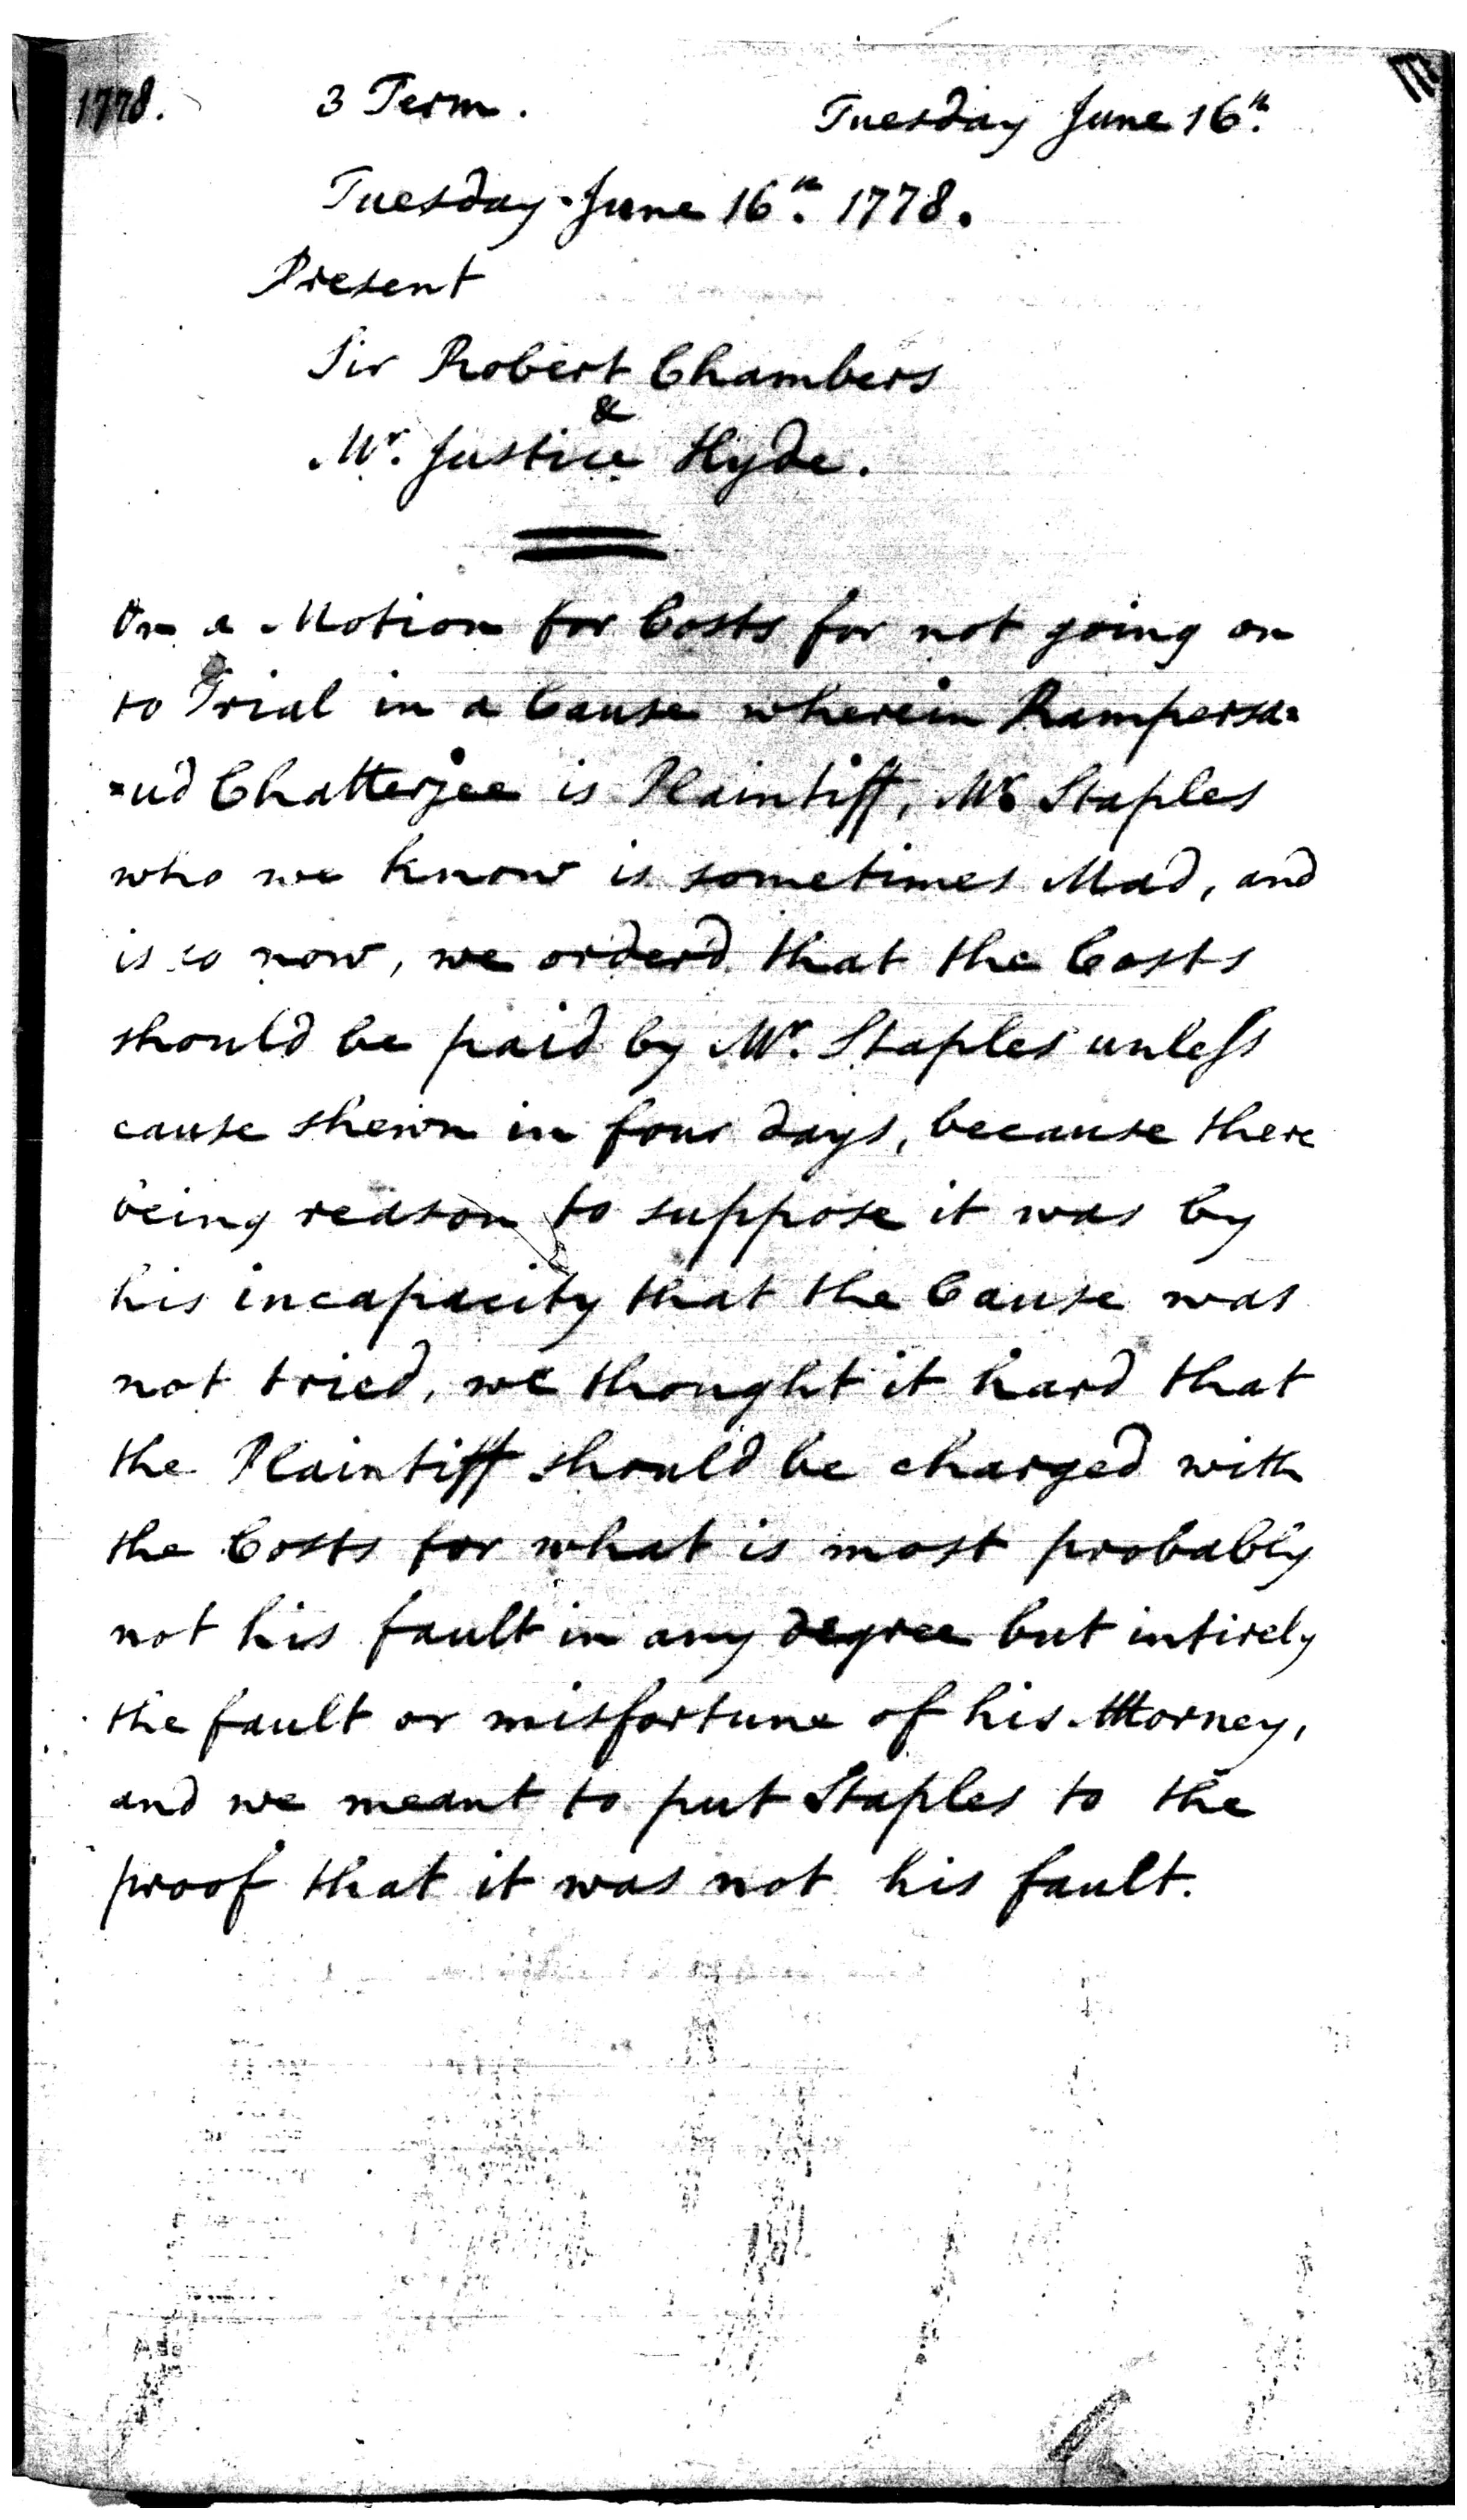 1778. 3 Term. Tuesday June 16th.
Tuesday June 16th. 1778.
Present
Sir Robert Chambers
&
Mr. Justice Hyde.
On a Motion for Costs for not going on
to Trial in a Cause wherein Rampersa=
=ud Chatterjee is Plaintiff, Mr Staples
who we know is sometimes Mad, and
is so now, we orderd that the Costs
should be paid by Mr. Staples unless
cause shewn in four days, because there
being reason to suppose it was by
his incapacity that the Cause was
not tried, we thought it hard that
the Plaintiff should be charged with
the Costs for what is most probably
not his fault in any degree but intirely
the fault or misfortune of his Attorney,
and we meant to put Staples to the
proof that it was not his fault.